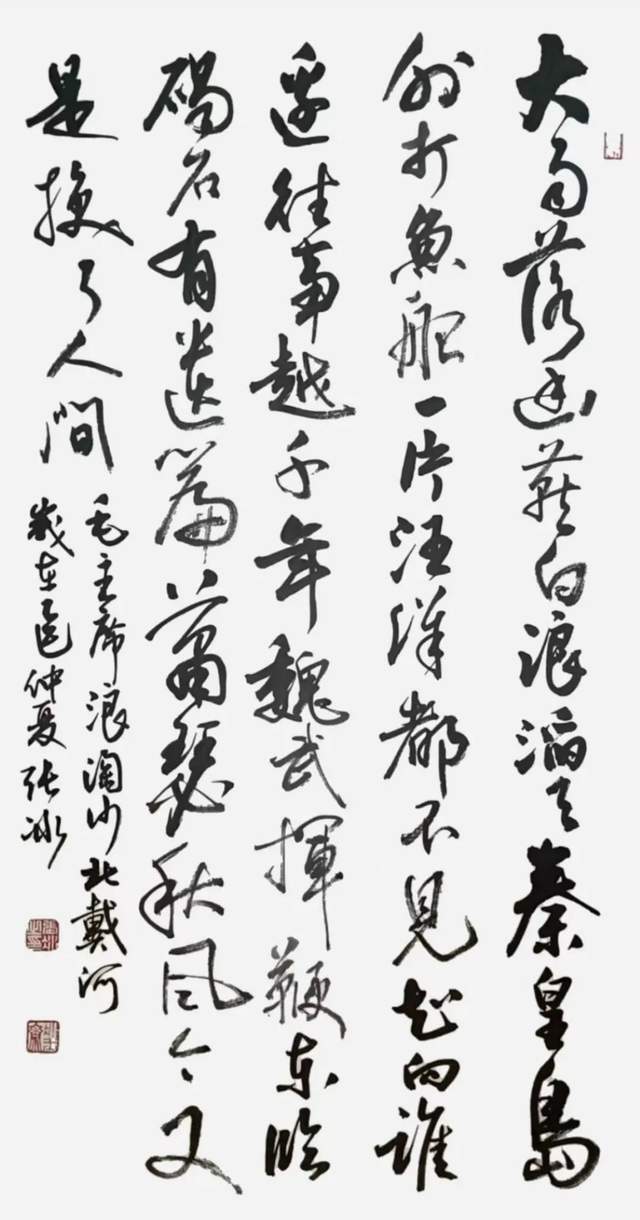 大雨落幽燕白浪滔天秦皇島
外打魚船一片汪洋都不見知向誰
邊往事越千年魏武揮鞭東臨
碣石有遺篇蕭瑟秋風今又
是換了人間
毛主席浪淘沙北戴河
歲在乙巳仲夏張冰